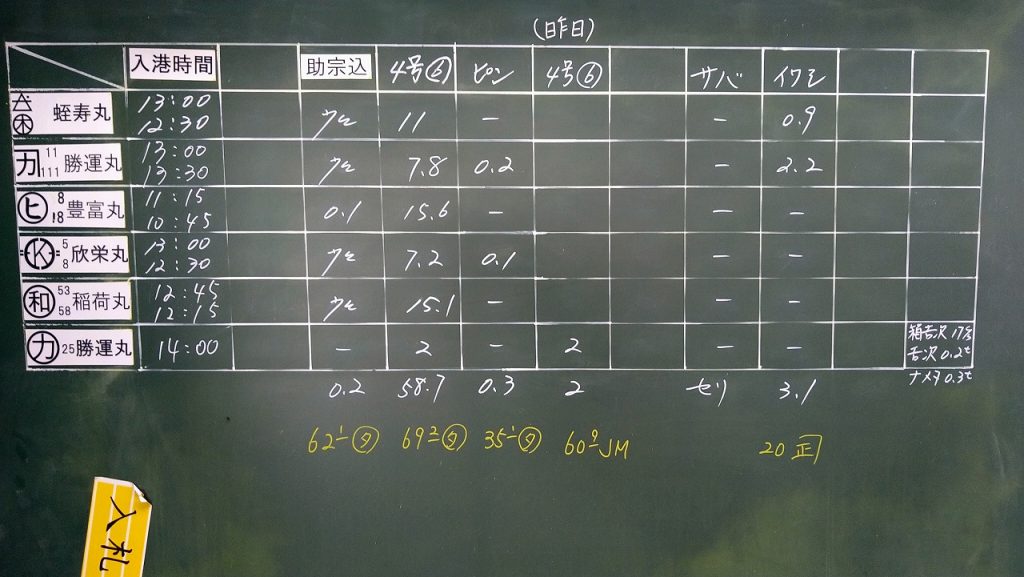 (昨日)
入港時間 助宗込 4号⑥ ピン 4号⑥ サバ イワシ
蛭寿丸 13:00 12:30 11 - - 0.9
カ 11 111 勝運丸 13:00 13:30 7.8 0.2 - 2.2
ヒ 8 18 豊富丸 11:15 10:45 0.1 15.6 - - -
K 5 8 欣栄丸 13:00 12:30 7.2 0.1 - -
和 53 58 稲荷丸 12:45 12:15 15.1 - - -
カ 25 勝運丸 14:00 - 2 - 2 - -
箱舌沢 17
舌沢 0.2t
ナメタ 0.3t
0.2 58.7 0.3 2 セリ 3.1
62 1 タ 69 2 タ 35 1 タ 60 9 JM 20 正
入札